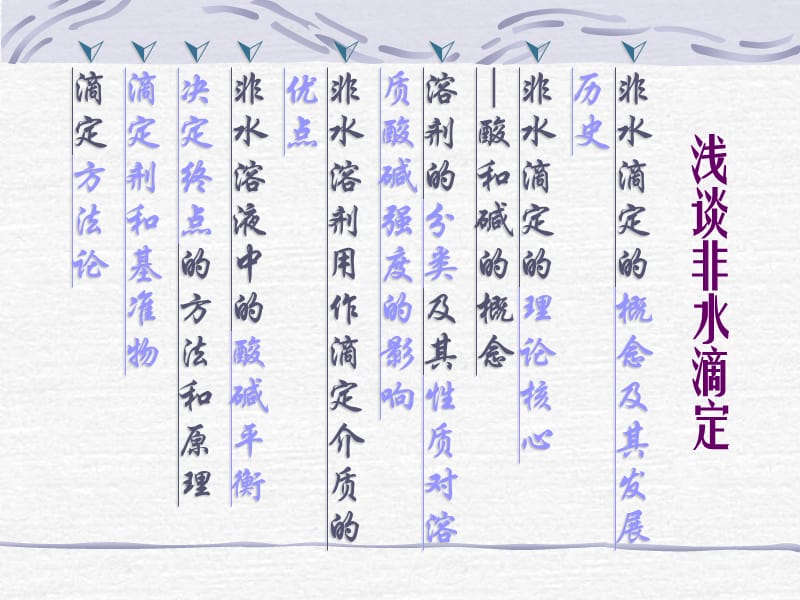 浅谈非水滴定
非水滴定的概念及其发展
历史
非水滴定的理论核心
—酸和碱的概念
溶剂的分类及其性质对溶
质酸碱强度的影响
非水溶剂用作滴定介质的
优点
非水溶液中的酸碱平衡
决定终点的方法和原理
滴定剂和基准物
滴定方法论